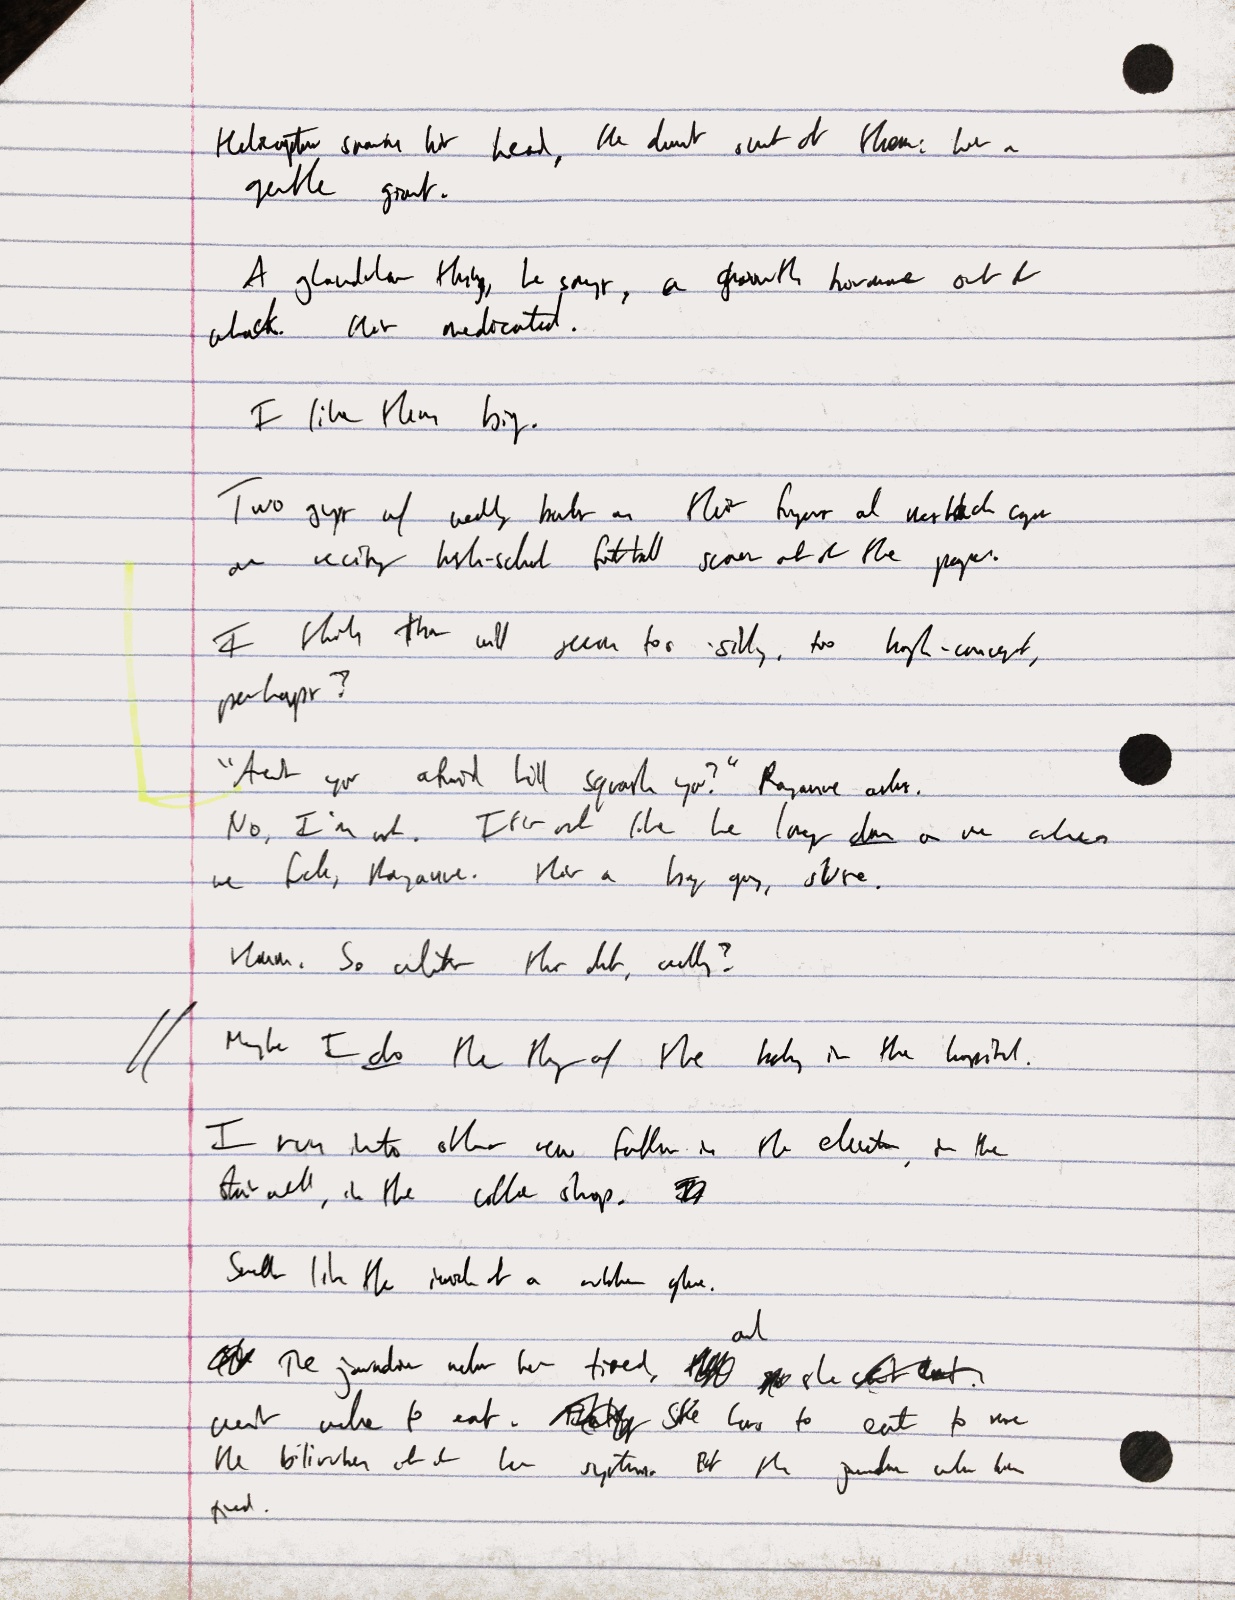 Helicopters swarm his head, he doesn't swat at them: he's a
gentle giant.
A glandular thing, he says, a growth hormone out of
whack. He's medicated.
I like them big.
Two guys w/ wedding bands on their fingers and baseball caps
are reciting high-school football scores out of the paper.
I think this will seem too silly, too high-concept,
perhaps?
"Aren't you afraid he'll squash you?" Rayanne asks.
No, I'm not. It's not like he lays down on me when
we fuck, Rayanne. He's a big guy, sure.
Hmm. So what's the deal, really?
Maybe I do the thing of the baby in the hospital.
I run into other new fathers in the elevator, in the
stairwell, in the coffee shop.
Smells like the inside of a rubber glove.
The jaundice makes her tired, and she
won't wake to eat. She has to eat to move
the bilirubin out of her system. But the jaundice makes her
tired.